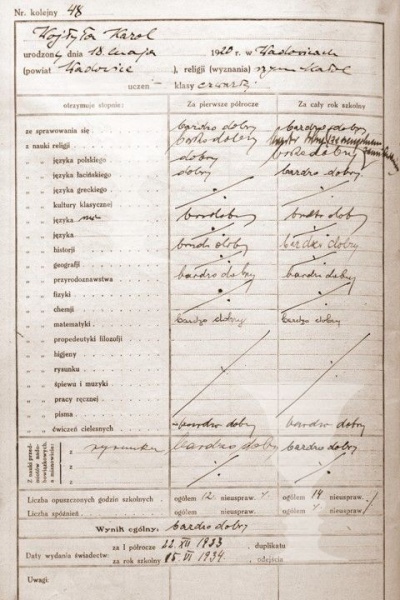 Nr. kolejny 48
Wojtyła Karol
urodzony dnia 18 maja 1920 r. w Wadowicach
(powiat Wadowice ), religii (wyznania) rzym. katol.
uczeń — klasy czwartej
otrzymuje stopnie: Za pierwsze półrocze Za cały rok szkolny
ze sprawowania się bardzo dobry bardzo dobry
z nauki religii bardzo dobry
„ „ języka polskiego dobry bardzo dobry
„ „ języka łacińskiego dobry bardzo dobry
„ „ języka greckiego
„ „ kultury klasycznej
„ „ języka niem. bardzo dobry bardzo dobry
„ „ języka
„ „ historji bardzo dobry bardzo dobry
„ „ geografji
„ „ przyrodoznawstwa bardzo dobry bardzo dobry
„ „ fizyki
„ „ chemji
„ „ matematyki bardzo dobry bardzo dobry
„ „ propedeutyki filozofji
„ „ higjeny
„ „ rysunku
„ „ śpiewu i muzyki
„ „ pracy ręcznej
„ „ pisma
„ „ ćwiczeń cielesnych bardzo dobry bardzo dobry
Z nauki przedmiotów nadobowiązkowych a mianowicie:
z rysunku bardzo dobry bardzo dobry
z
z
Liczba opuszczonych godzin szkolnych . ogółem 12 nieuspraw. ogółem 14 nieuspraw.
Liczba spóźnień . ogółem nieuspraw. ogółem nieuspraw.
Wynik ogólny: bardzo dobry
Daty wydania świadectw: za I półrocze 22. XII 1933 , duplikatu
za rok szkolny 15. VI 1934 , odejścia
Uwagi: